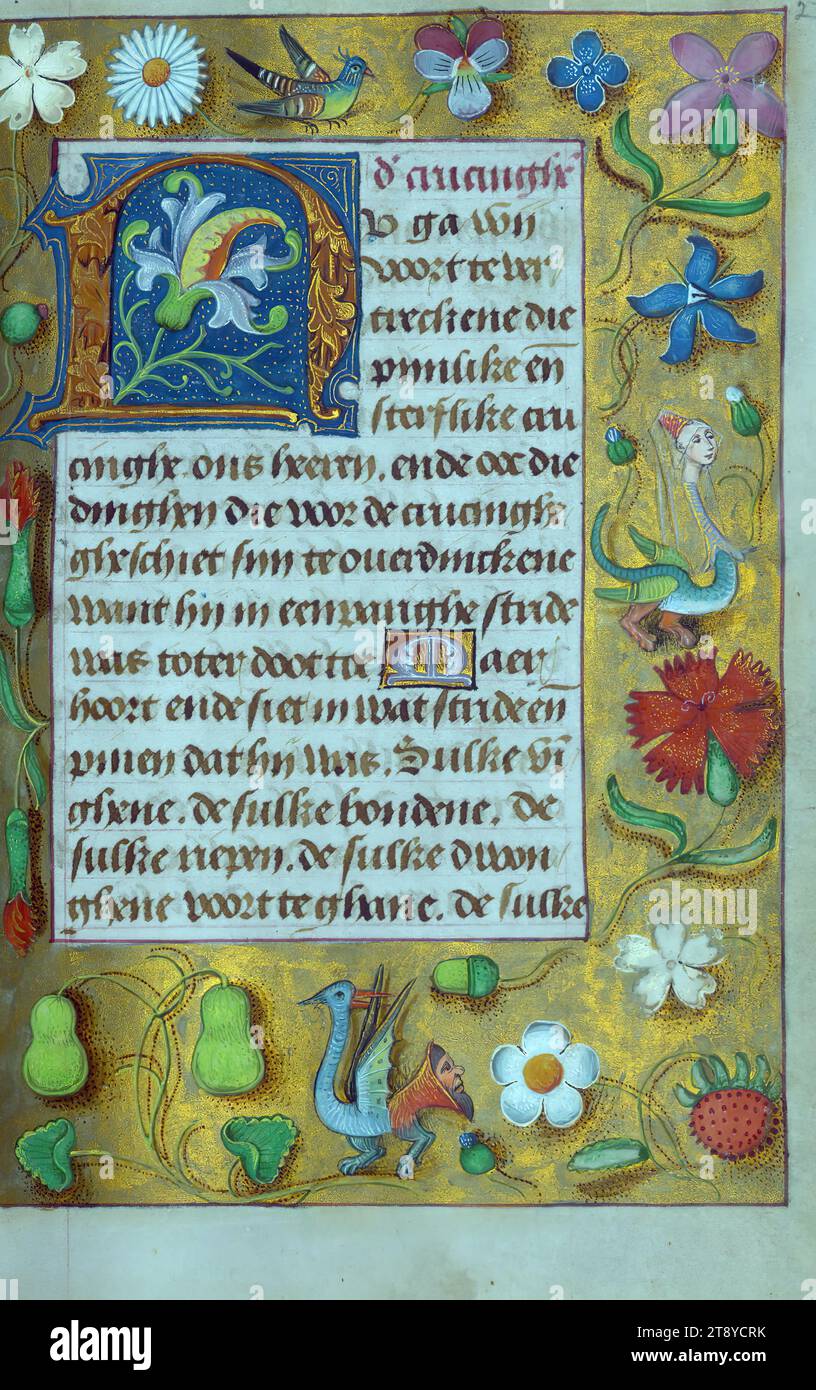 2
d' crucinghe
Nu ga wij
voort te ver
treckene die
pijnlike en̄
sterflike cru
cinghe ons heeren. ende ooc die
dinghen die voor de crucinghe
ghesciet sijn te ouerdinckene
want hij in een panghe stride
was toter doot toe Maer
hoort ende siet in wat stride en̄
pinen dat hij was. Sulke vī
ghene. de sulke bondene. de
sulke riepen. de sulke dwon
ghene voort te ghane. de sulke
alamy
alamy
Image ID: 2T8YCRK
www.alamy.com